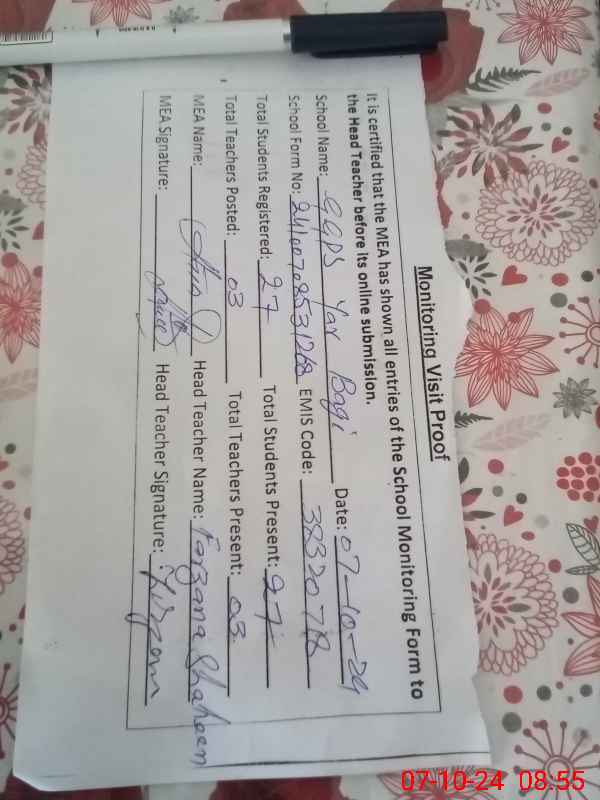 Monitoring Visit Proof
It is certified that the MEA has shown all entries of the School Monitoring Form to
the Head Teacher before its online submission.
School Name: GGPS Yar Bagi Date: 07-10-24
School Form No: EMIS Code: 3832078
Total Students Registered: 27 Total Students Present: 27
Total Teachers Posted: 03 Total Teachers Present: 03
MEA Name: Head Teacher Name: Farzana Shaheen
MEA Signature: Head Teacher Signature:
07-10-24 08:55